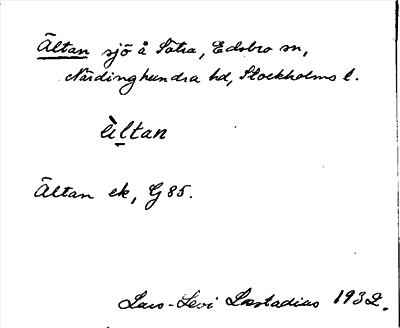 Ältan sjö å Tötra, Edsbro sn,
Närdinghundra hd, Stockholms l.
ältan
Ältan ek, G 85.
Lars-Levi Læstadius 1932.